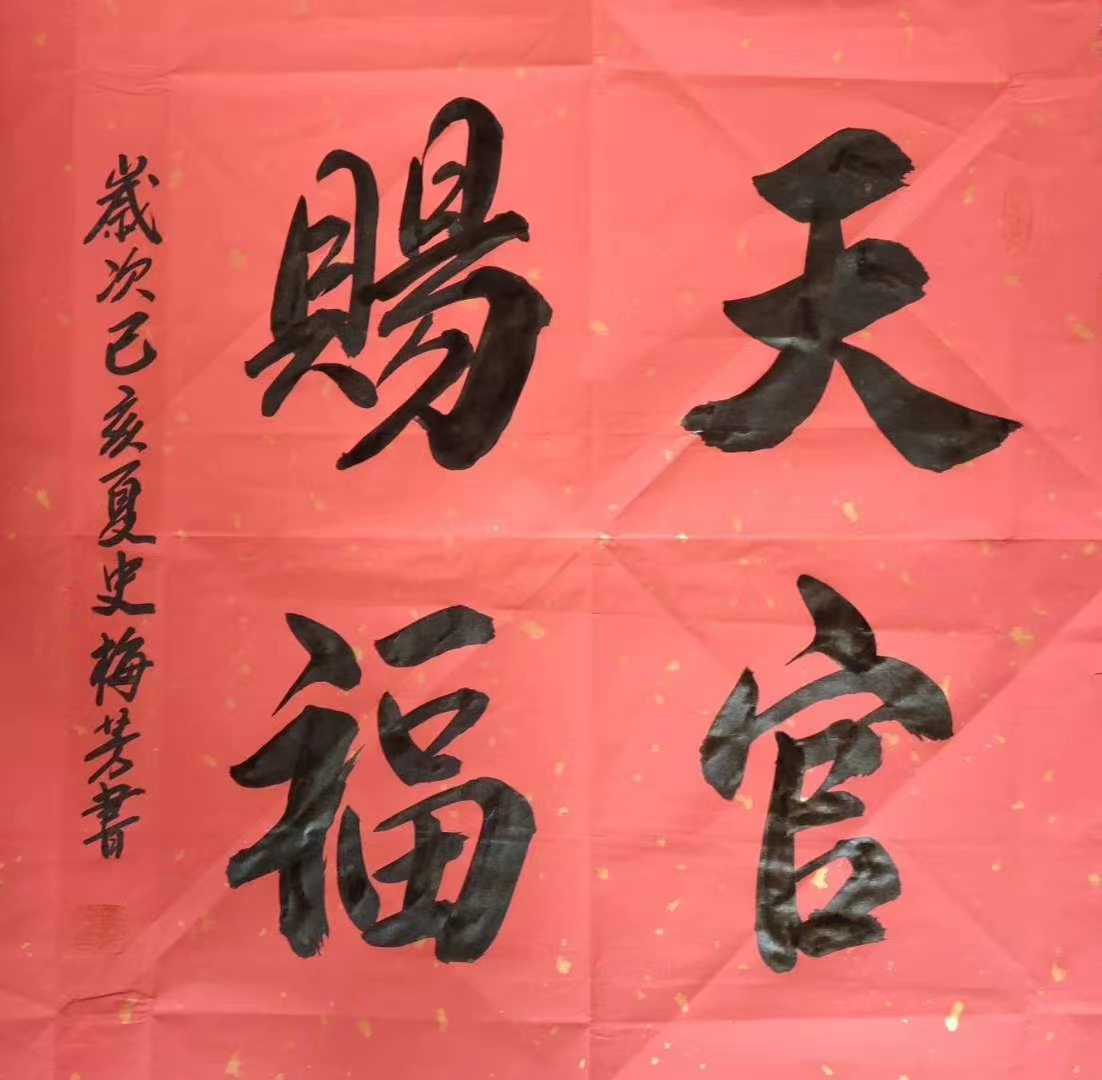 天官
賜福
歲次己亥夏史梅芳書